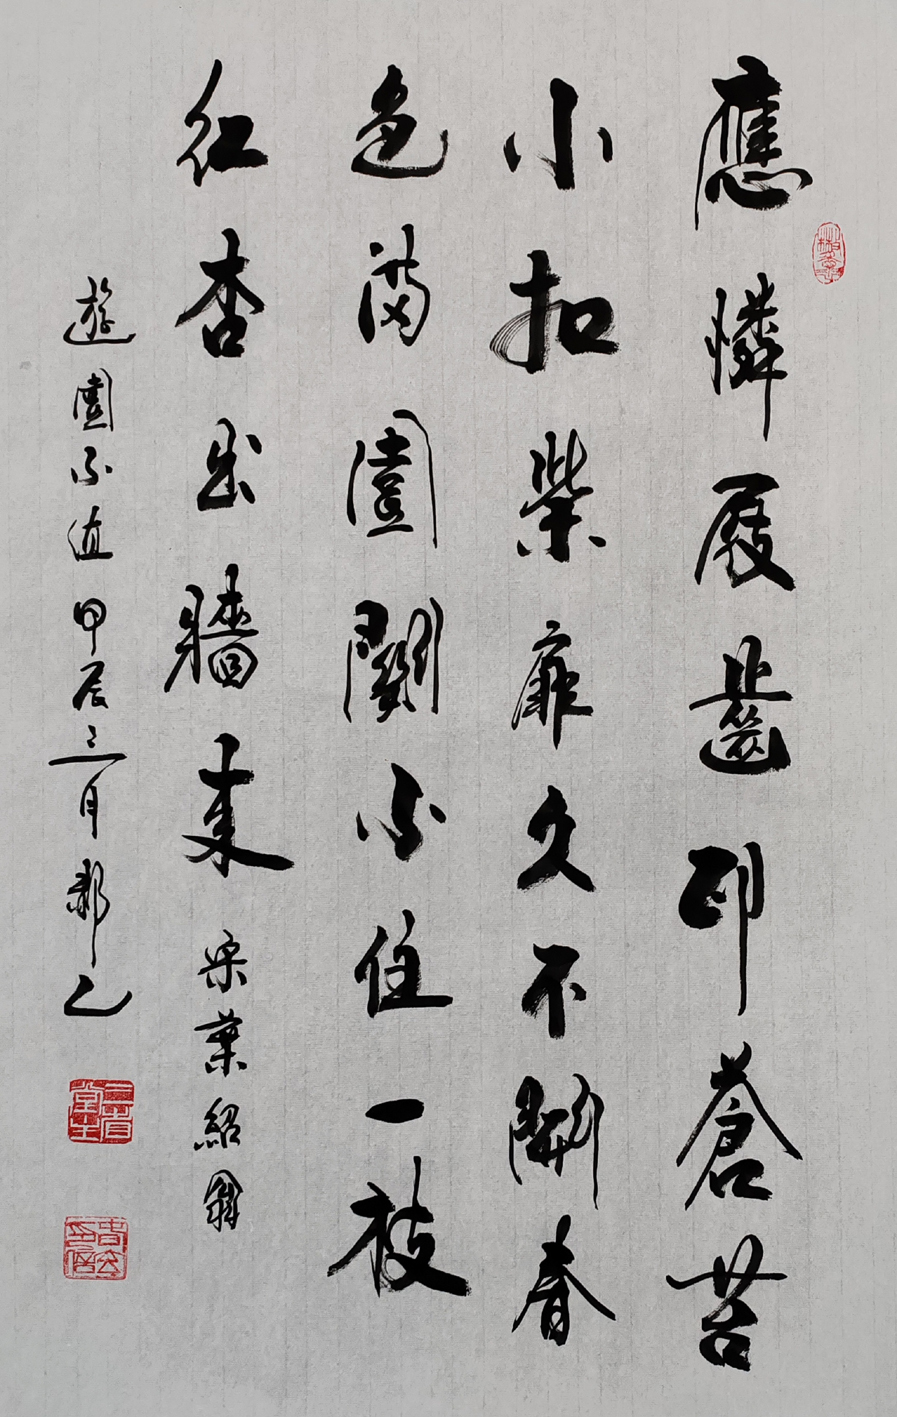 應憐屐齒印蒼苔
小扣柴扉久不開春
色滿園關不住一枝
紅杏出牆來 宋葉紹翁
遊園不值 甲辰三月
三省堂主